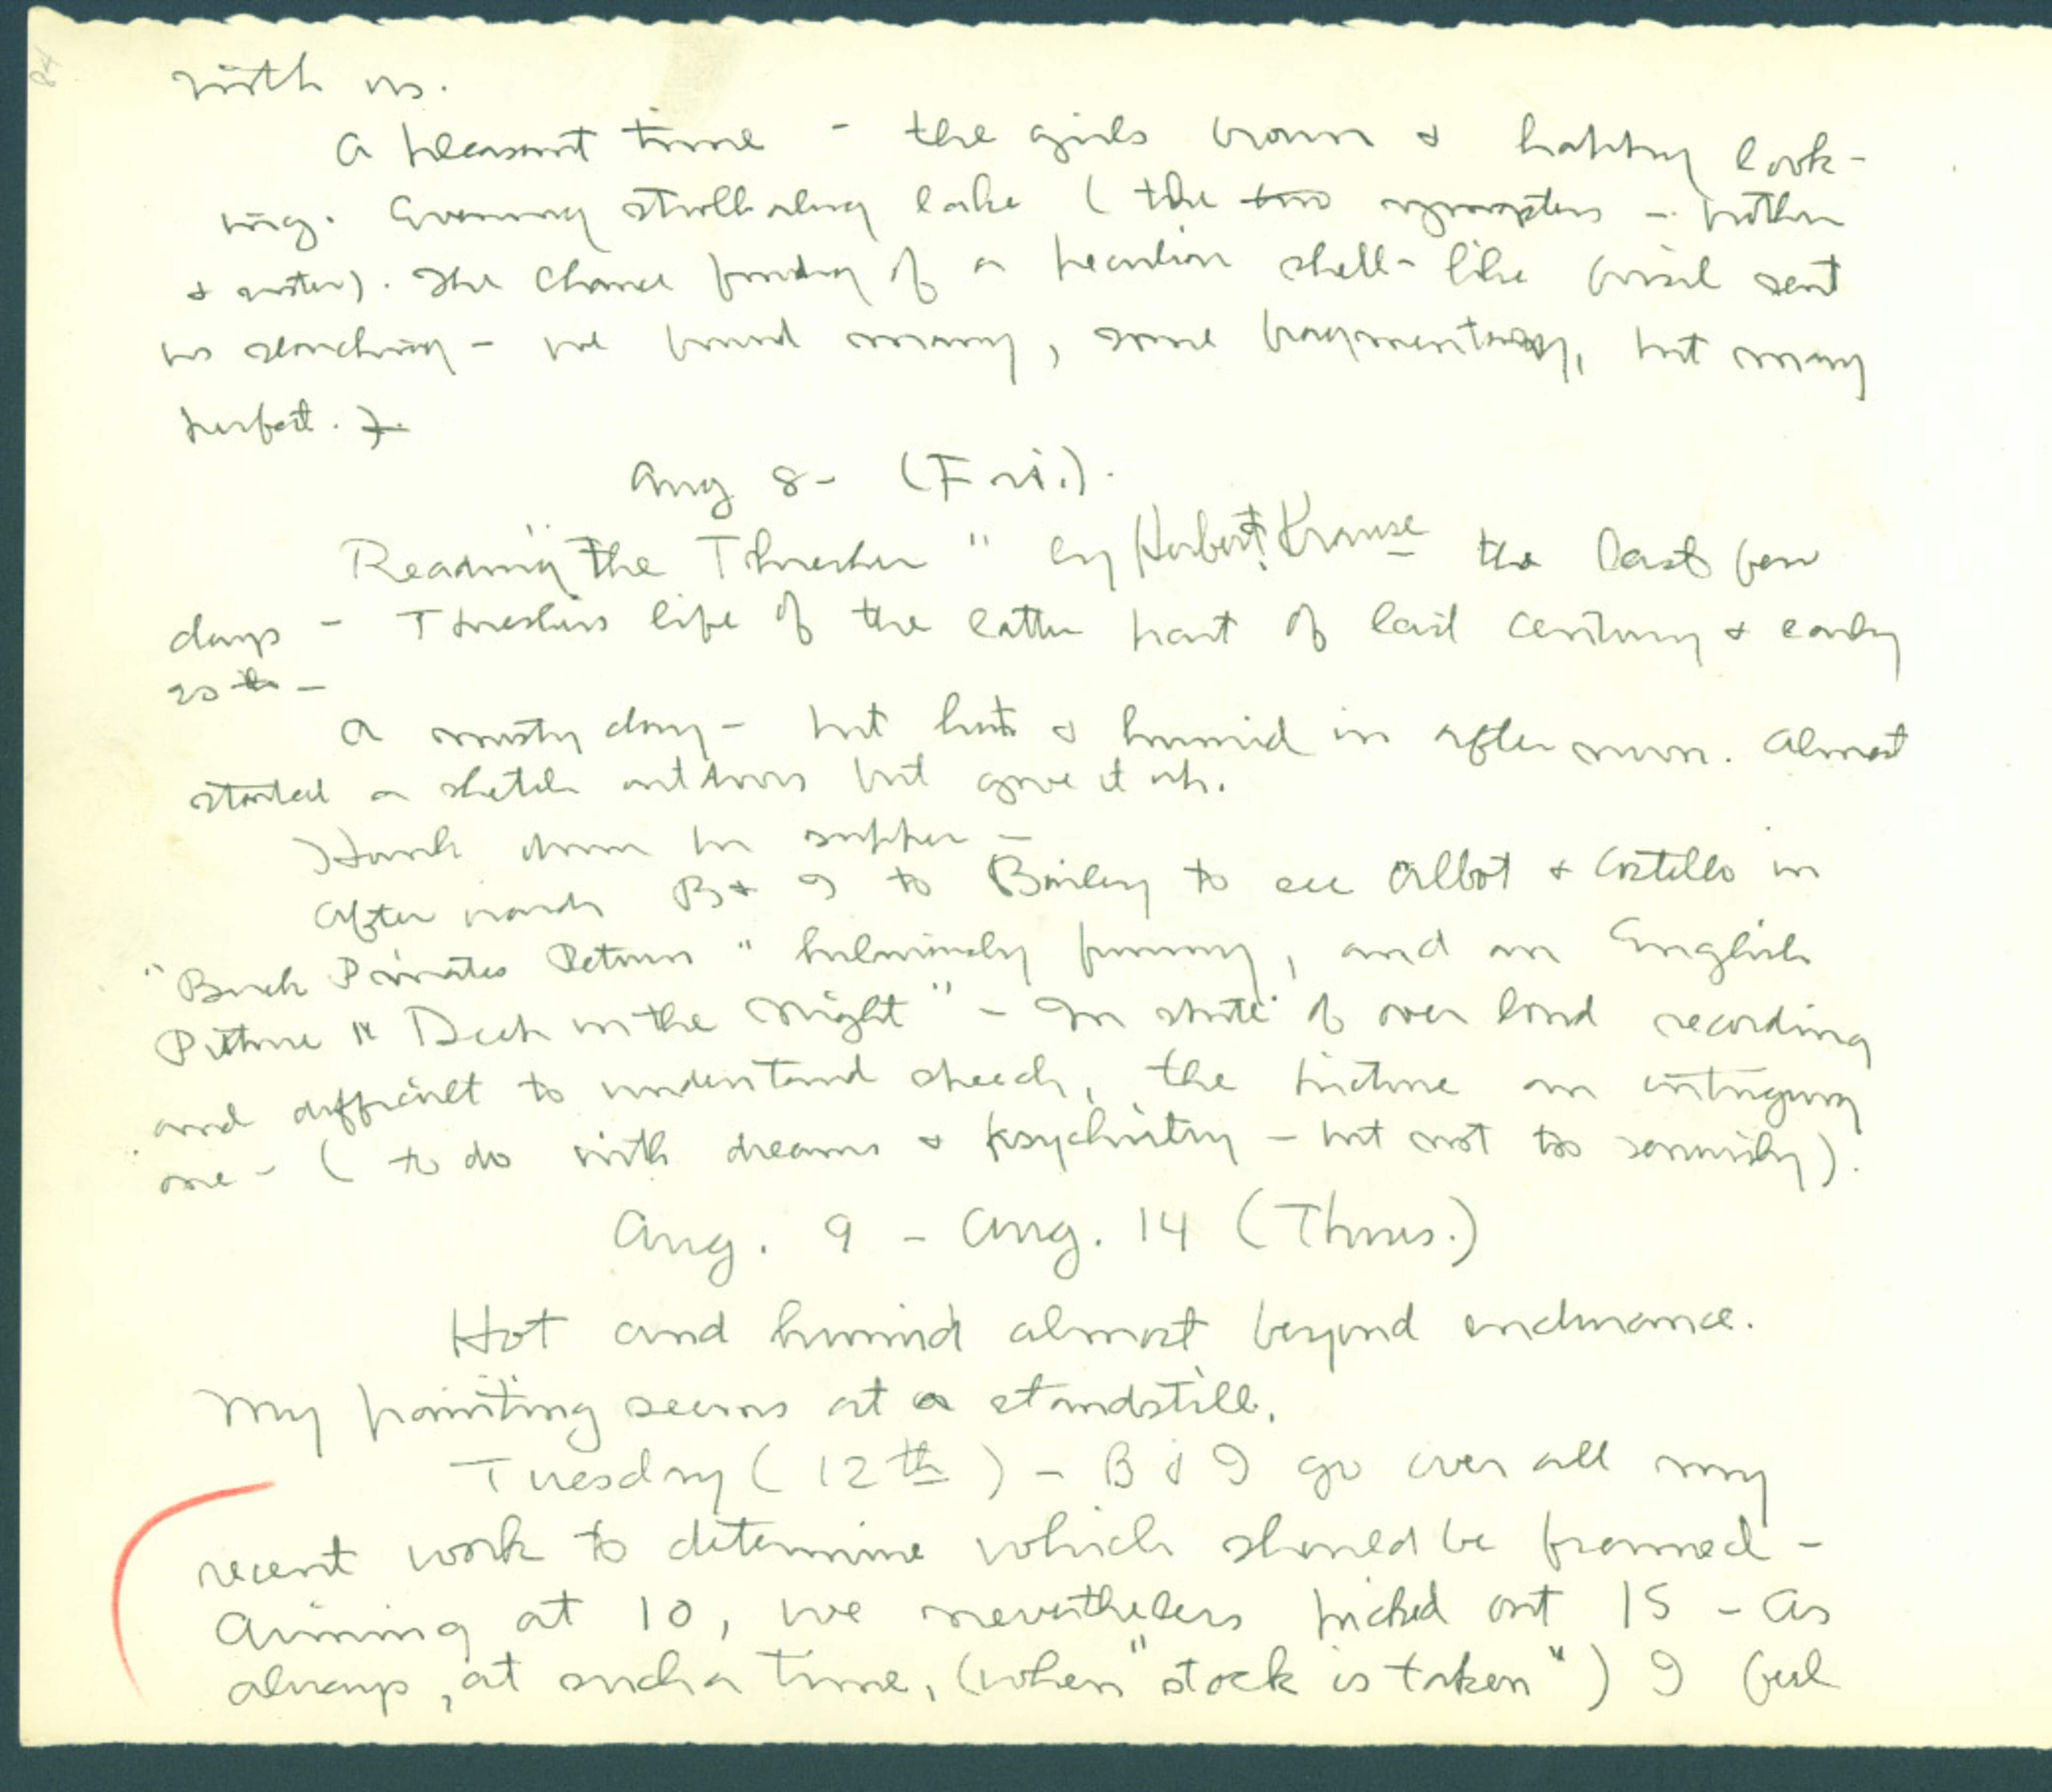 84
with us.
A pleasant time - the girls brown & happy look-
ing. Evening stroll along lake ( the two youngsters - brother
& sister). The chance finding of a peculiar shell-like fossil sent
us searching - we found many, some fragmentary, but many
perfect.
Aug 8 - (Fri.).
Reading "The Thresher" by Herbert Krause the last few
days - Threshers life of the latter part of last century & early
20th -
A misty day - but hot & humid in afternoon. Almost
started a sketch outdoors but gave it up.
Hank down for supper -
Afterwards B & I to Bailey to see Abbot & Costello in
"Buck Privates Return" hilariously funny, and an English
Picture "Dead in the Night" - In spite of over loud recording
and difficult to understand speech, the picture an intriguing
one - ( to do with dreams & psychiatry - but not too seriously).
Aug. 9 - Aug. 14 (Thurs.)
Hot and humid almost beyond endurance.
My painting seems at a standstill.
Tuesday ( 12th ) - B & I go over all my
recent work to determine which should be framed -
Aiming at 10, we nevertheless picked out 15 - As
always, at such a time, (when "stock is taken") I feel